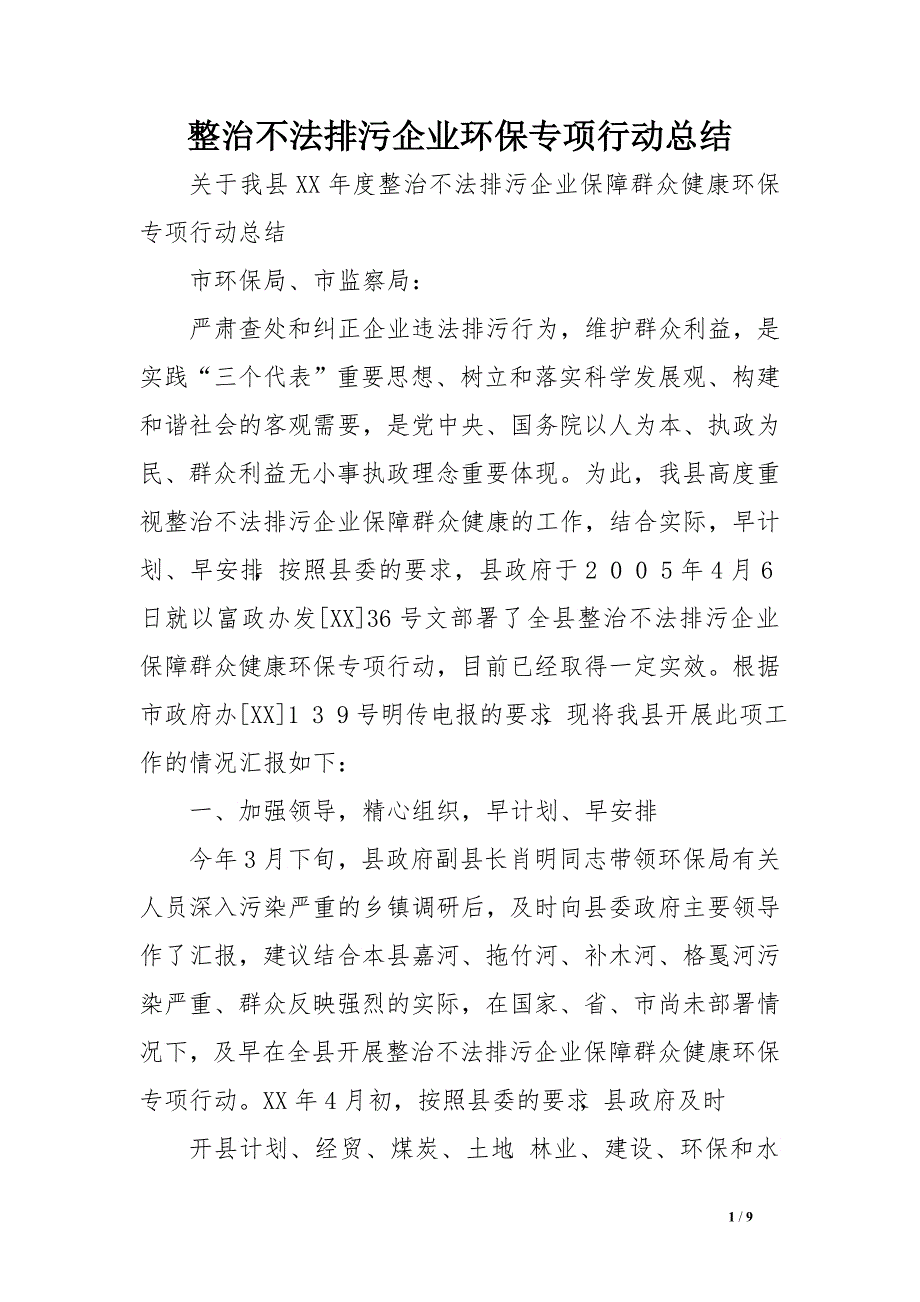 整治不法排污企业环保专项行动总结
关于我县 XX 年度整治不法排污企业保障群众健康环保
专项行动总结
市环保局、市监察局：
严肃查处和纠正企业违法排污行为，维护群众利益，是
实践“三个代表”重要思想、树立和落实科学发展观、构建
和谐社会的客观需要，是党中央、国务院以人为本、执政为
民、群众利益无小事执政理念重要体现。为此，我县高度重
视整治不法排污企业保障群众健康的工作，结合实际，早计
划、早安排，按照县委的要求，县政府于２００５年４月６
日就以富政办发[XX]36 号文部署了全县整治不法排污企业
保障群众健康环保专项行动，目前已经取得一定实效。根据
市政府办[XX]１３９号明传电报的要求，现将我县开展此项工
作的情况汇报如下：
一、加强领导，精心组织，早计划、早安排
今年３月下旬，县政府副县长肖明同志带领环保局有关
人员深入污染严重的乡镇调研后，及时向县委政府主要领导
作了汇报，建议结合本县嘉河、拖竹河、补木河、格戛河污
染严重、群众反映强烈的实际，在国家、省、市尚未部署情
况下，及早在全县开展整治不法排污企业保障群众健康环保
专项行动。XX 年４月初，按照县委的要求，县政府及时
开县计划、经贸、煤炭、土地、林业、建设、环保和水
1 / 9